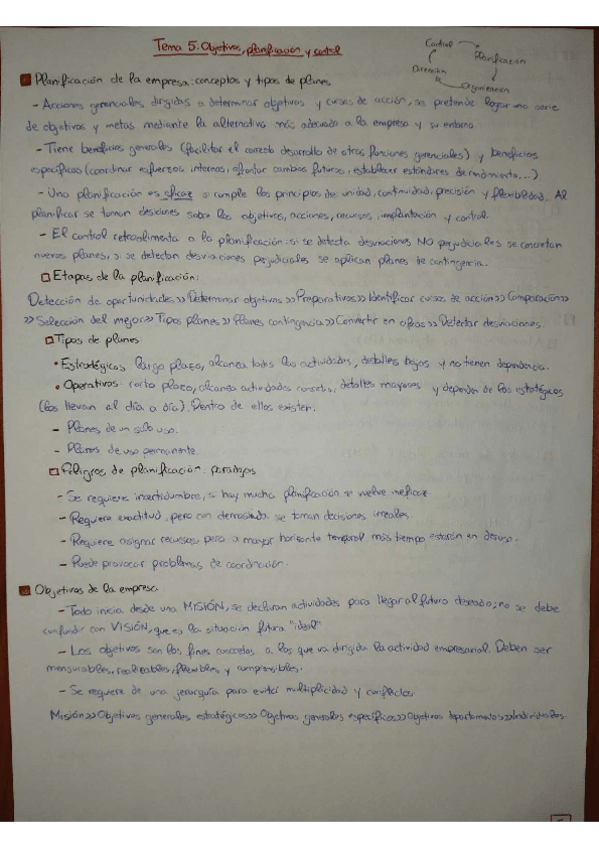 Tema 5: Objetivos, planificación y control
Control
Planificación
Dirección
Organización
Planificación de la empresa: conceptos y tipos de planes
- Acciones gerenciales dirigidas a determinar objetivos y cursos de acción, se pretende lograr una serie
de objetivos y metas mediante la alternativa más adecuada a la empresa y su entorno.
- Tiene beneficios generales (facilitar el correcto desarrollo de otras funciones gerenciales) y beneficios
específicos (coordinar esfuerzos internos, afrontar cambios futuros, establecer estándares de rendimiento...)
- Una planificación es eficaz si cumple los principios de unidad, continuidad, precisión y flexibilidad. Al
planificar se toman decisiones sobre los objetivos, acciones, recursos, implantación y control.
- El control retroalimenta a la planificación: si se detecta desviaciones NO perjudiciales se concretan
nuevos planes, si se detectan desviaciones perjudiciales se aplican planes de contingencia.
Etapas de la planificación:
Detección de oportunidades >> Determinar objetivos >> Preparativos >> Identificar cursos de acción >> Comparación >>
>> Selección del mejor >> Tipos planes >> Planes contingencia >> Convertir en cifras >> Detectar desviaciones.
Tipos de planes:
• Estratégicos: largo plazo, alcanza todas las actividades, detalles bajos y no tienen dependencia.
• Operativos: corto plazo, alcanza actividades concretas, detalles mayores y dependen de los estratégicos
(los llevan al día a día). Dentro de ellos existen:
- Planes de un solo uso.
- Planes de uso permanente.
Peligros de planificación: paradojas
- Se requiere incertidumbre, si hay mucha planificación se vuelve ineficaz.
- Requiere exactitud, pero con demasiada se toman decisiones irreales.
- Requiere asignar recursos, pero a mayor horizonte temporal más tiempo estarán en desuso.
- Puede provocar problemas de coordinación.
Objetivos de la empresa
- Todo inicia desde una MISIÓN, se declaran actividades para llegar al futuro deseado; no se debe
confundir con VISIÓN, que es la situación futura "ideal"
- Los objetivos son los fines concretos a los que va dirigida la actividad empresarial. Deben ser
mensurables, realizables, flexibles y comprensibles.
- Se requiere de una jerarquía para evitar multiplicidad y conflictos
Misión >> Objetivos generales estratégicos >> Objetivos generales específicos >> Objetivos departamento >> Individuales.